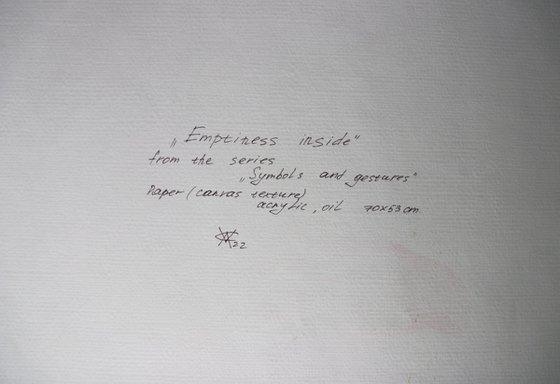 „Emptiness inside“
from the series
„Symbols and gestures“
Paper (canvas texture)
acrylic, oil 70x53 cm
22